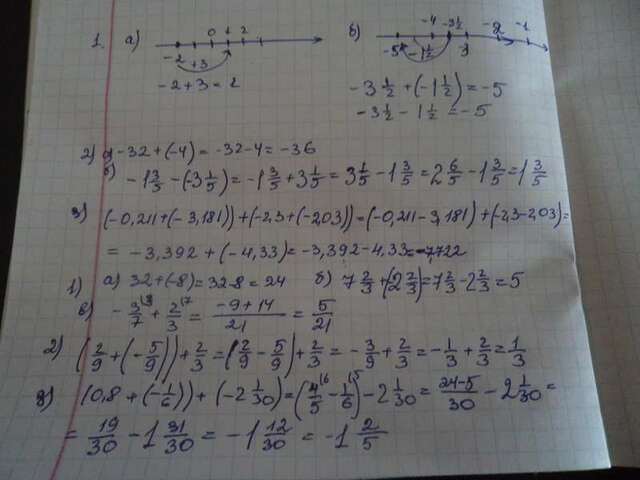 1. а) 0 1 2 б) -4 -3 1/2 -2 -1
-2 +3 -5 -1 1/2 3
-2+3=1 -3 1/2 + (-1 1/2) = -5
-3 1/2 - 1 1/2 = -5
2) а) -32+(-4) = -32-4 = -36
б) -1 3/5 - (-3 1/5) = -1 3/5 + 3 1/5 = 3 1/5 - 1 3/5 = 2 6/5 - 1 3/5 = 1 3/5
3) (-0,211+(-3,181))+(-2,3+(-2,03))=(-0,211-3,181)+(-2,3-2,03)=
= -3,392+(-4,33)=-3,392-4,33=-7,722
1) а) 32+(-8)=32-8=24 б) 7 2/3 + (-2 2/3) = 7 2/3 - 2 2/3 = 5
в) -3/7 + 2/3 = (-9+14)/21 = 5/21
2) (2/9 + (-5/9)) + 2/3 = (2/9 - 5/9) + 2/3 = -3/9 + 2/3 = -1/3 + 2/3 = 1/3
3) (0,8+(-1/6)) + (-2 1/30) = (4/5 - 1/6) - 2 1/30 = (24-5)/30 - 2 1/30 =
= 19/30 - 1 31/30 = -1 12/30 = -1 2/5